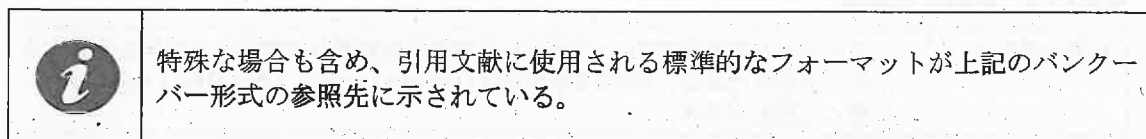 i
特殊な場合も含め、引用文献に使用される標準的なフォーマットが上記のバンクー
バー形式の参照先に示されている。